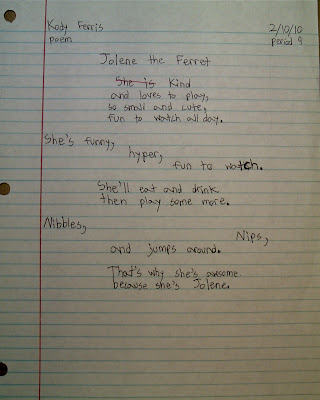 Kody Ferris 2/10/10
poem period 9
Jolene the Ferret
She is Kind
and loves to play,
so small and cute,
fun to watch all day.
She's funny,
hyper,
fun to watch.
She'll eat and drink
then play some more.
Nibbles,
Nips,
and jumps around.
That's why she's awesome
because she's Jolene.